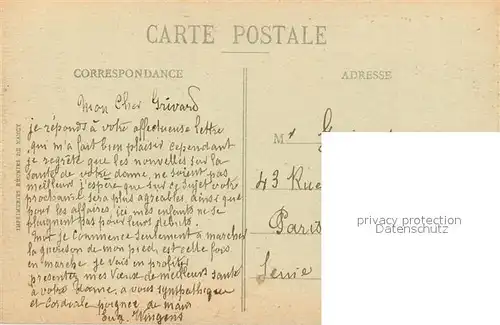 CARTE POSTALE
CORRESPONDANCE
ADRESSE
Mon Cher Grivard
je réponds à votre affectueuse lettre
qui m'a fait bien plaisir cependant
je regrette que les nouvelles sur la
santé de votre dame, ne soient pas
meilleurs j'espère que sur ce sujet votre
prochaine sera plus agréable ainsi que
pour les affaires, ici mes enfants ne se
plaignent pas pour leurs débuts
Moi je commence seulement à marcher
la guérison de mon pied est cette fois
en marche je vais en profiter
présentez mes Vœux de meilleurs santé
à votre Dame, à vous sympathique
et cordiale poignée de main
Eug. Wingens
IMPRIMERIES RÉUNIES DE NANCY
Mr
43 Rue
Paris
Seine
privacy protection
Datenschutz